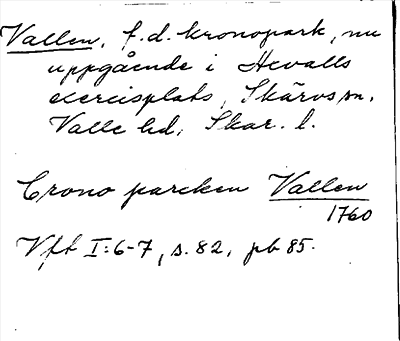 Vallen, f.d. kronopark, nu
uppgående i Hevalls
exercisplats, Skärvs sn,
Valle hd, Skar. l.
Crono parcken Vallen
1760
Vft I:6-7, s. 82, pb 85.